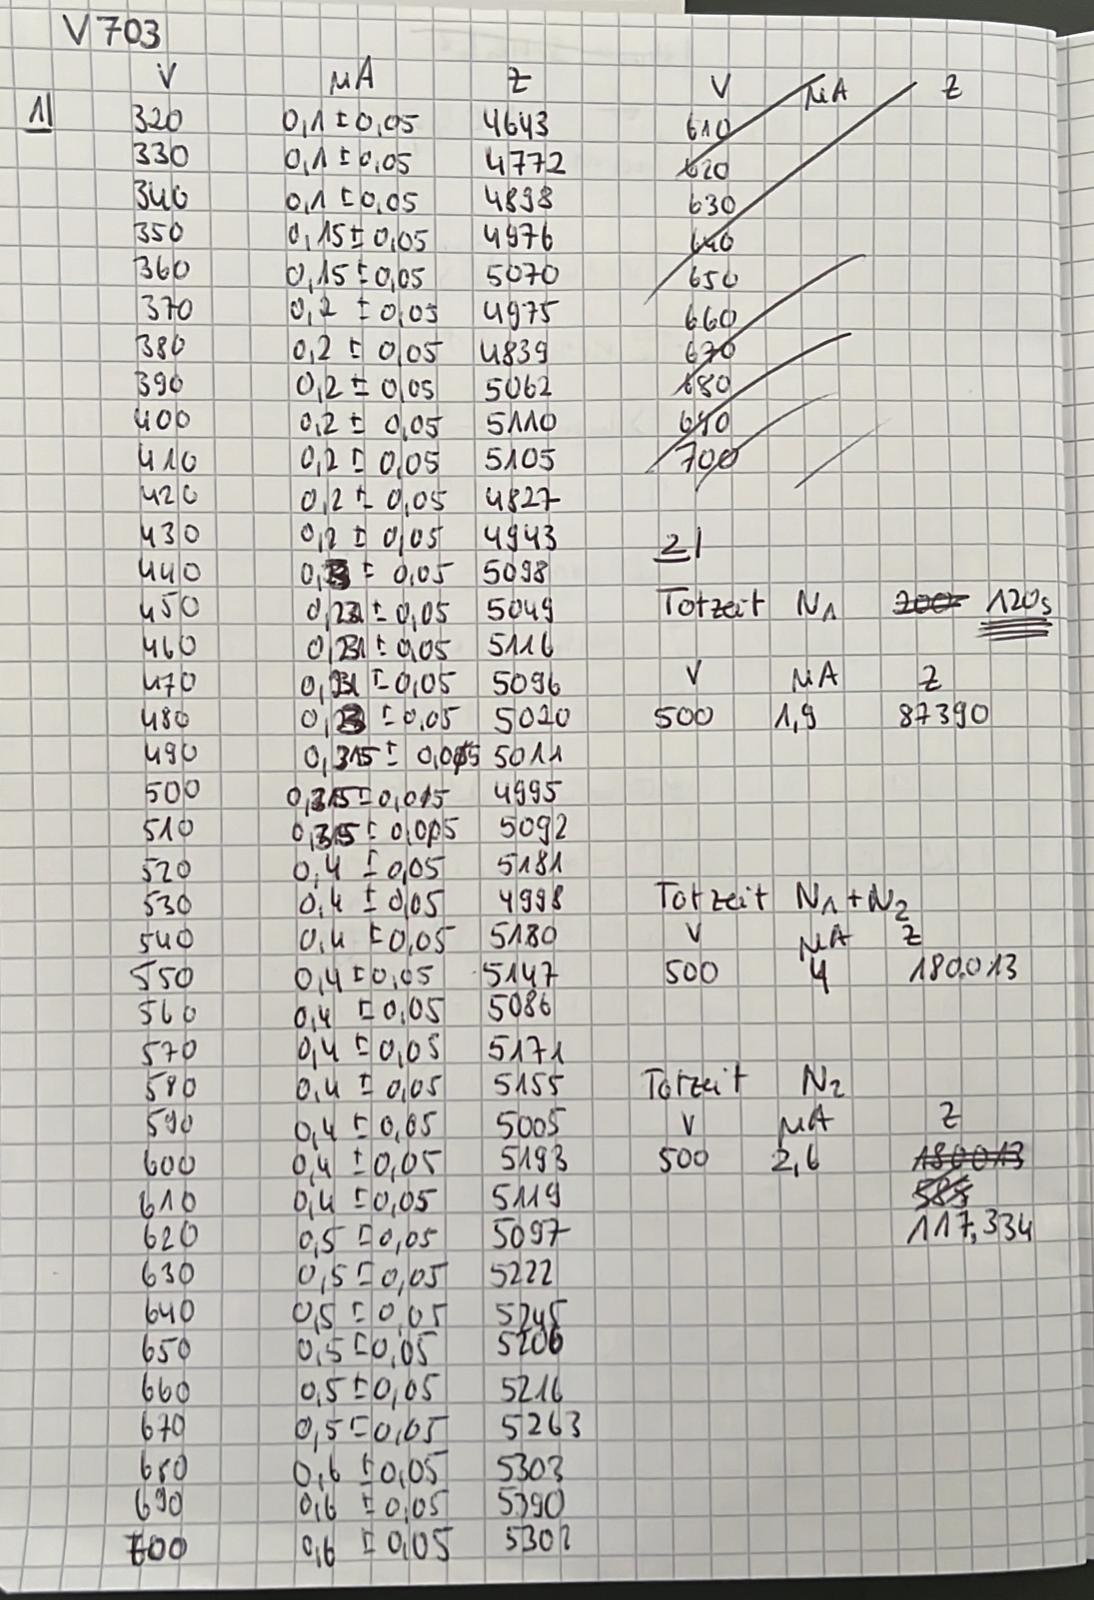 V703
V µA Z
1) 320 0,1 ± 0,05 4643
330 0,1 ± 0,05 4772
340 0,1 ± 0,05 4898
350 0,15 ± 0,05 4976
360 0,15 ± 0,05 5070
370 0,2 ± 0,05 4975
380 0,2 ± 0,05 4839
390 0,2 ± 0,05 5062
400 0,2 ± 0,05 5110
410 0,2 ± 0,05 5105
420 0,2 ± 0,05 4827
430 0,2 ± 0,05 4943
440 ± 0,05 5098
450 ± 0,05 5049
460 ± 0,05 5116
470 ± 0,05 5096
480 ± 0,05 5020
490 5011
500 4995
510 5092
520 0,4 ± 0,05 5181
530 0,4 ± 0,05 4998
540 0,4 ± 0,05 5180
550 0,4 ± 0,05 5147
560 0,4 ± 0,05 5086
570 0,4 ± 0,05 5171
580 0,4 ± 0,05 5155
590 0,4 ± 0,05 5005
600 0,4 ± 0,05 5193
610 0,4 ± 0,05 5119
620 0,5 ± 0,05 5097
630 0,5 ± 0,05 5222
640 0,5 ± 0,05 5245
650 0,5 ± 0,05 5206
660 0,5 ± 0,05 5216
670 0,5 ± 0,05 5263
680 0,6 ± 0,05 5303
690 0,6 ± 0,05 5390
700 0,6 ± 0,05 5302
V µA Z
610
620
630
640
650
660
670
680
690
700
2)
Totzeit N1 200 120s
V µA Z
500 1,9 87390
Totzeit N1+N2
V µA Z
500 4 180.013
Totzeit N2
V µA Z
500 2,6 180013
585
117,334